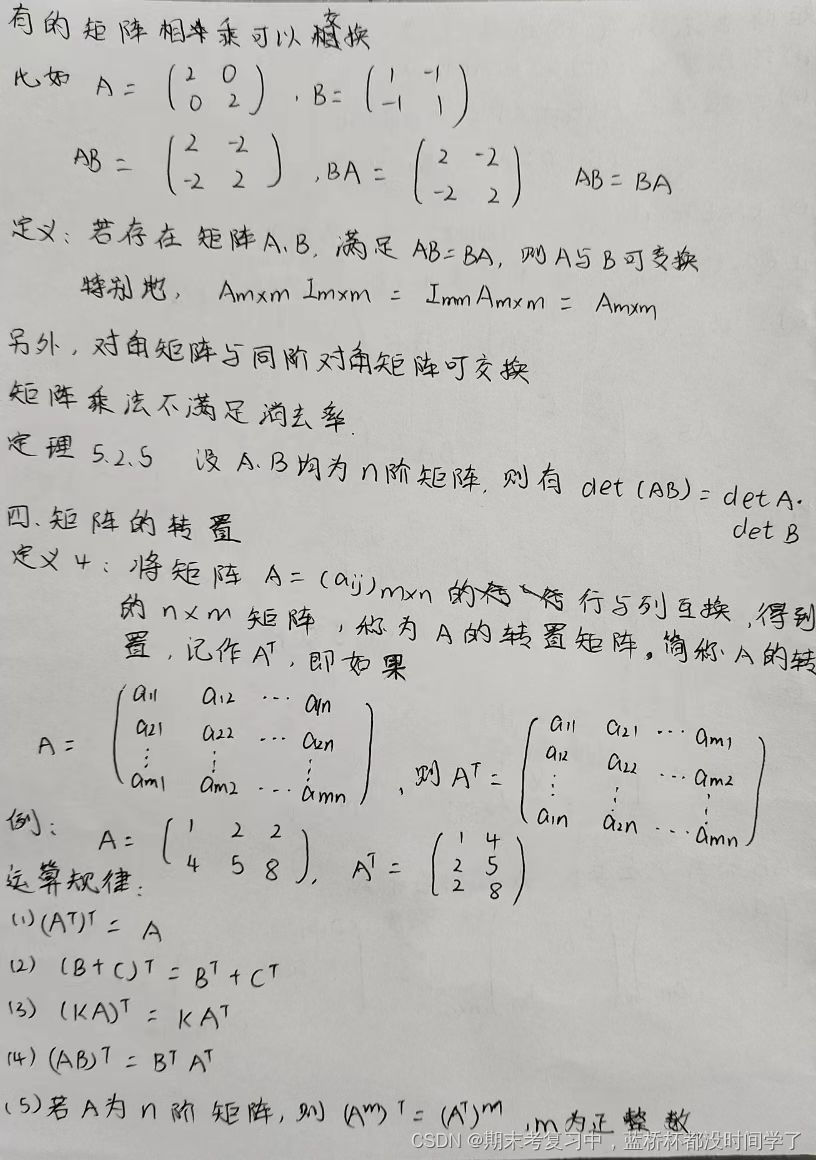 有的矩阵相乘可以交换
比如 A = (2 0
0 2), B = (1 -1
-1 1)
AB = (2 -2
-2 2), BA = (2 -2
-2 2) AB = BA
定义: 若存在矩阵A.B, 满足AB=BA, 则A与B可交换
特别地, Am×m Im×m = Imm Am×m = Am×m
另外, 对角矩阵与同阶对角矩阵可交换
矩阵乘法不满足消去率.
定理 5.2.5 设A.B均为n阶矩阵, 则有 det(AB) = det A·
det B
四. 矩阵的转置
定义4: 将矩阵 A=(aij)m×n 的行与列互换, 得到
的n×m矩阵, 称为A的转置矩阵。简称A的转
置, 记作Aᵀ, 即如果
A = (a11 a12 ⋯ a1n
a21 a22 ⋯ a2n
⋮ ⋮ ⋮
am1 am2 ⋯ amn), 则 Aᵀ = (a11 a21 ⋯ am1
a12 a22 ⋯ am2
⋮ ⋮ ⋮
a1n a2n ⋯ amn)
例: A = (1 2 2
4 5 8), Aᵀ = (1 4
2 5
2 8)
运算规律:
(1) (Aᵀ)ᵀ = A
(2) (B+C)ᵀ = Bᵀ + Cᵀ
(3) (KA)ᵀ = KAᵀ
(4) (AB)ᵀ = BᵀAᵀ
(5) 若A为n阶矩阵, 则 (Aᵐ)ᵀ = (Aᵀ)ᵐ, m为正整数
CSDN @期末考复习中，蓝桥杯都没时间学了